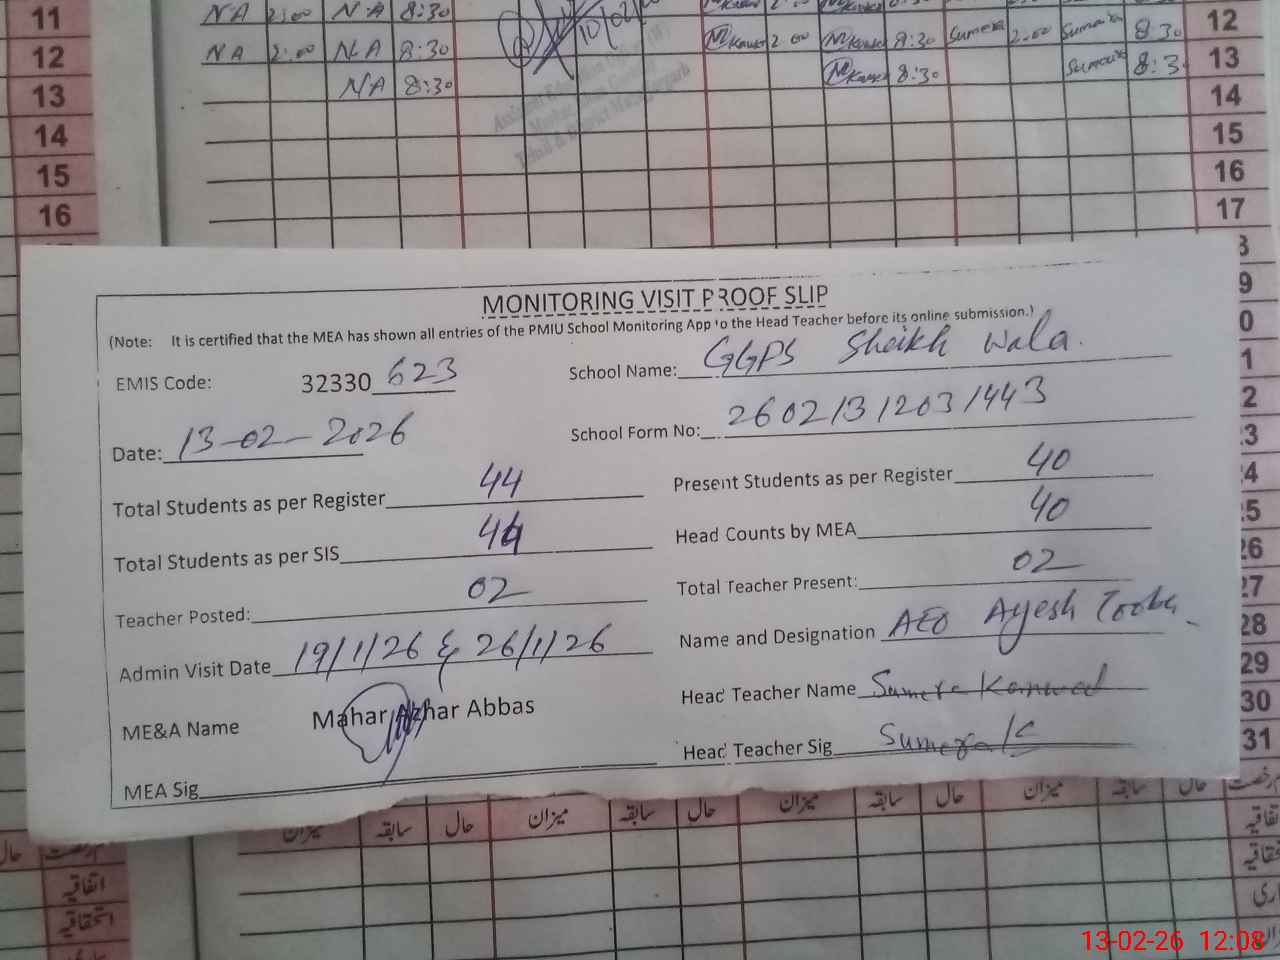 11 NA 2:00 N·A 8:30
12 NA 2:00 N·A 8:30
13 NA 8:30
14
15
16
10/02/
Assistant Education Officer (W)
Kausar 2 00 Kausar 8:30 Sumera 2.00 Sumaira 8:30 12
Kausar 8:30 Sumaira 8:3 13
14
15
16
17
MONITORING VISIT PROOF SLIP
(Note: It is certified that the MEA has shown all entries of the PMIU School Monitoring App to the Head Teacher before its online submission.)
EMIS Code: 32330 623 School Name: GGPS Sheikh Wala.
Date: 13-02-2026 School Form No: 260213 1203 1443
Total Students as per Register 44 Present Students as per Register 40
Total Students as per SIS 44 Head Counts by MEA 40
Teacher Posted: 02 Total Teacher Present: 02
Admin Visit Date 19/1/26 & 26/1/26 Name and Designation AEO Ayesh Tooba
ME&A Name Mahar Azhar Abbas Head Teacher Name Sumera Kanwal
MEA Sig Head Teacher Sig Sumera K
28
29
30
31
میزان سابقہ حال میزان سابقہ حال میزان سابقہ حال میزان سابقہ حال
اتفاقیہ
استحقاقیہ
13-02-26 12:08